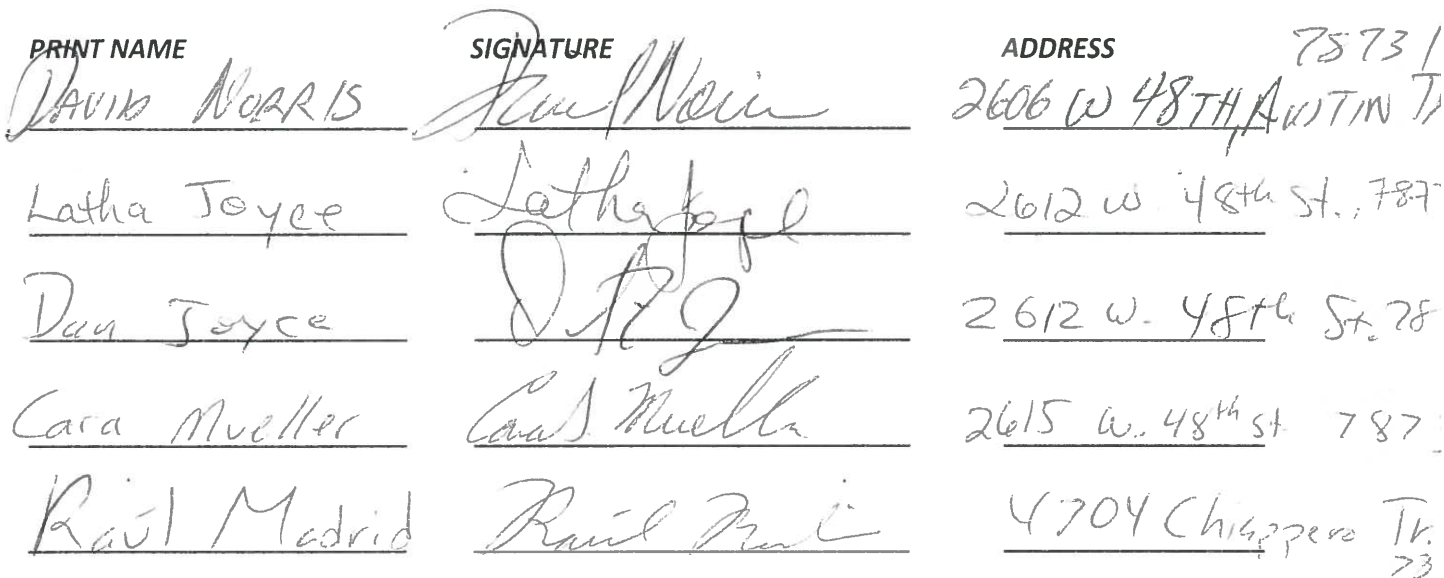 PRINT NAME SIGNATURE ADDRESS 78731
DAVID NORRIS David Norris 2606 W 48TH, AUSTIN TX
Latha Joyce Latha Joyce 2612 W 48th St., 787
Dan Joyce D R J 2612 W. 48th St. 78
Cara Mueller Cara J Mueller 2615 W. 48th St 787
Raúl Madrid Raúl Madrid 4704 Chiappero Tr.
73